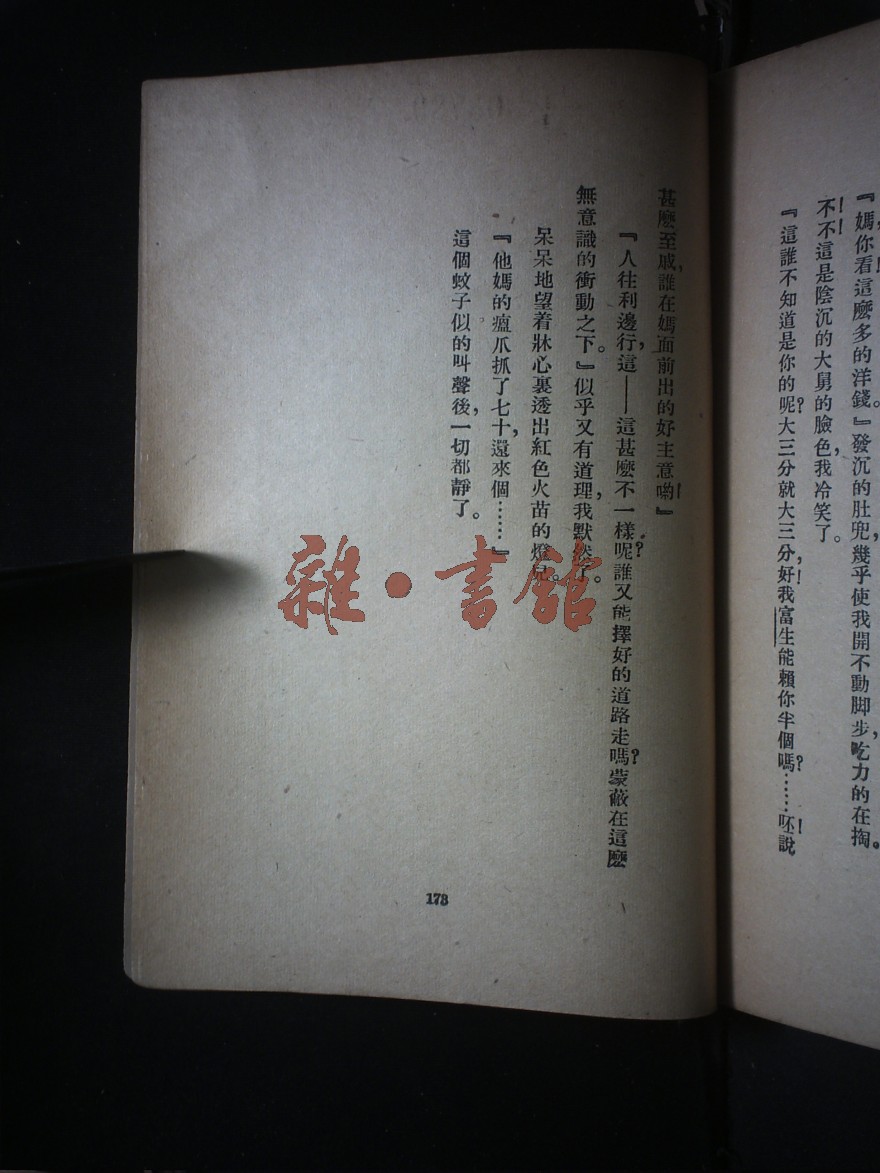 『媽，你看這麽多的洋錢。』發沉的肚兜，幾乎使我開不動脚步，吃力的在掏。
不！不！這是陰沉的大舅的臉色，我冷笑了。
『這誰不知道是你的呢？大三分就大三分，好！我富生能賴你半個嗎？……呸！說
甚麽至戚，誰在媽面前出的好主意喲！』
『人往利邊行，這——這甚麽不一樣呢？誰又能擇好的道路走嗎？蒙蔽在這麽
無意識的衝動之下。』似乎又有道理，我默然了。
呆呆地望着牀心裏透出紅色火苗的燈兒。
『他媽的瘟爪抓了七十，還來個……』
這個蚊子似的叫聲後，一切都靜了。
178
雜·書館